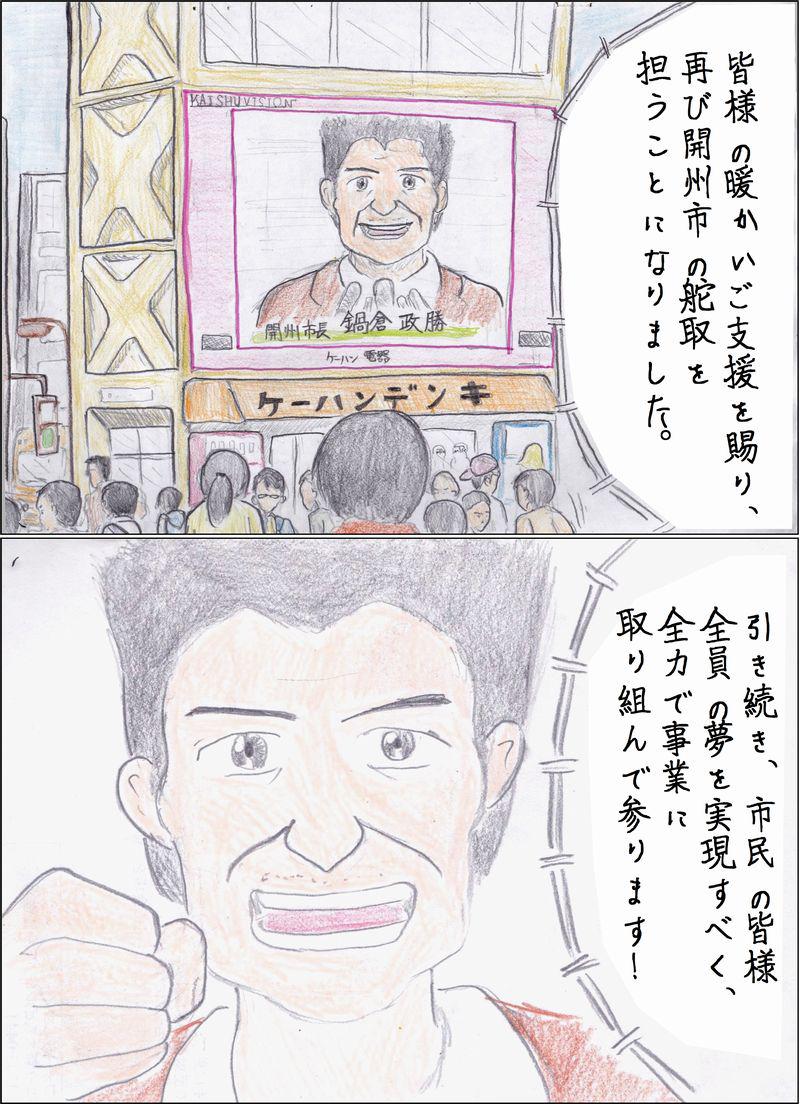 皆様の暖かいご支援を賜り、
再び開州市の舵取を
担うことになりました。
KAISHUVISION
開州市長 鍋倉政勝
ケーハン電器
ケーハンデンキ
引き続き、市民の皆様
全員の夢を実現すべく、
全力で事業に
取り組んで参ります!